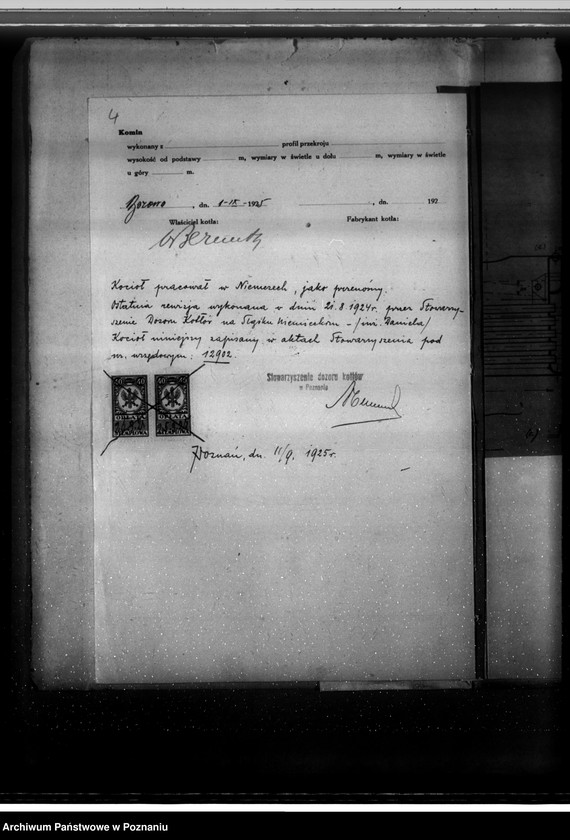 4
Komin
wykonany z profil przekroju
wysokość od podstawy m, wymiary w świetle u dołu m, wymiary w świetle
u góry m.
, dn. 1-IX-1925 , dn. 192
Właściciel kotła: Fabrykant kotła:
Kocioł pracował w Niemczech, jako przenośny.
Ostatnia rewizja wykonana w dniu 21.8.1924r. przez Stowarzy-
szenie Dozoru Kotłów na Śląsku Niemieckim -/inż. Daniela/
Kocioł niniejszy zapisany w aktach Stowarzyszenia pod
nr. urzędowym: 12902.
Stowarzyszenie dozoru kotłów
w Poznaniu
40 40 40 40
OPŁATA OPŁATA
STEMPLOWA STEMPLOWA
Poznań, dn. 11/9. 1925r.
Archiwum Państwowe w Poznaniu